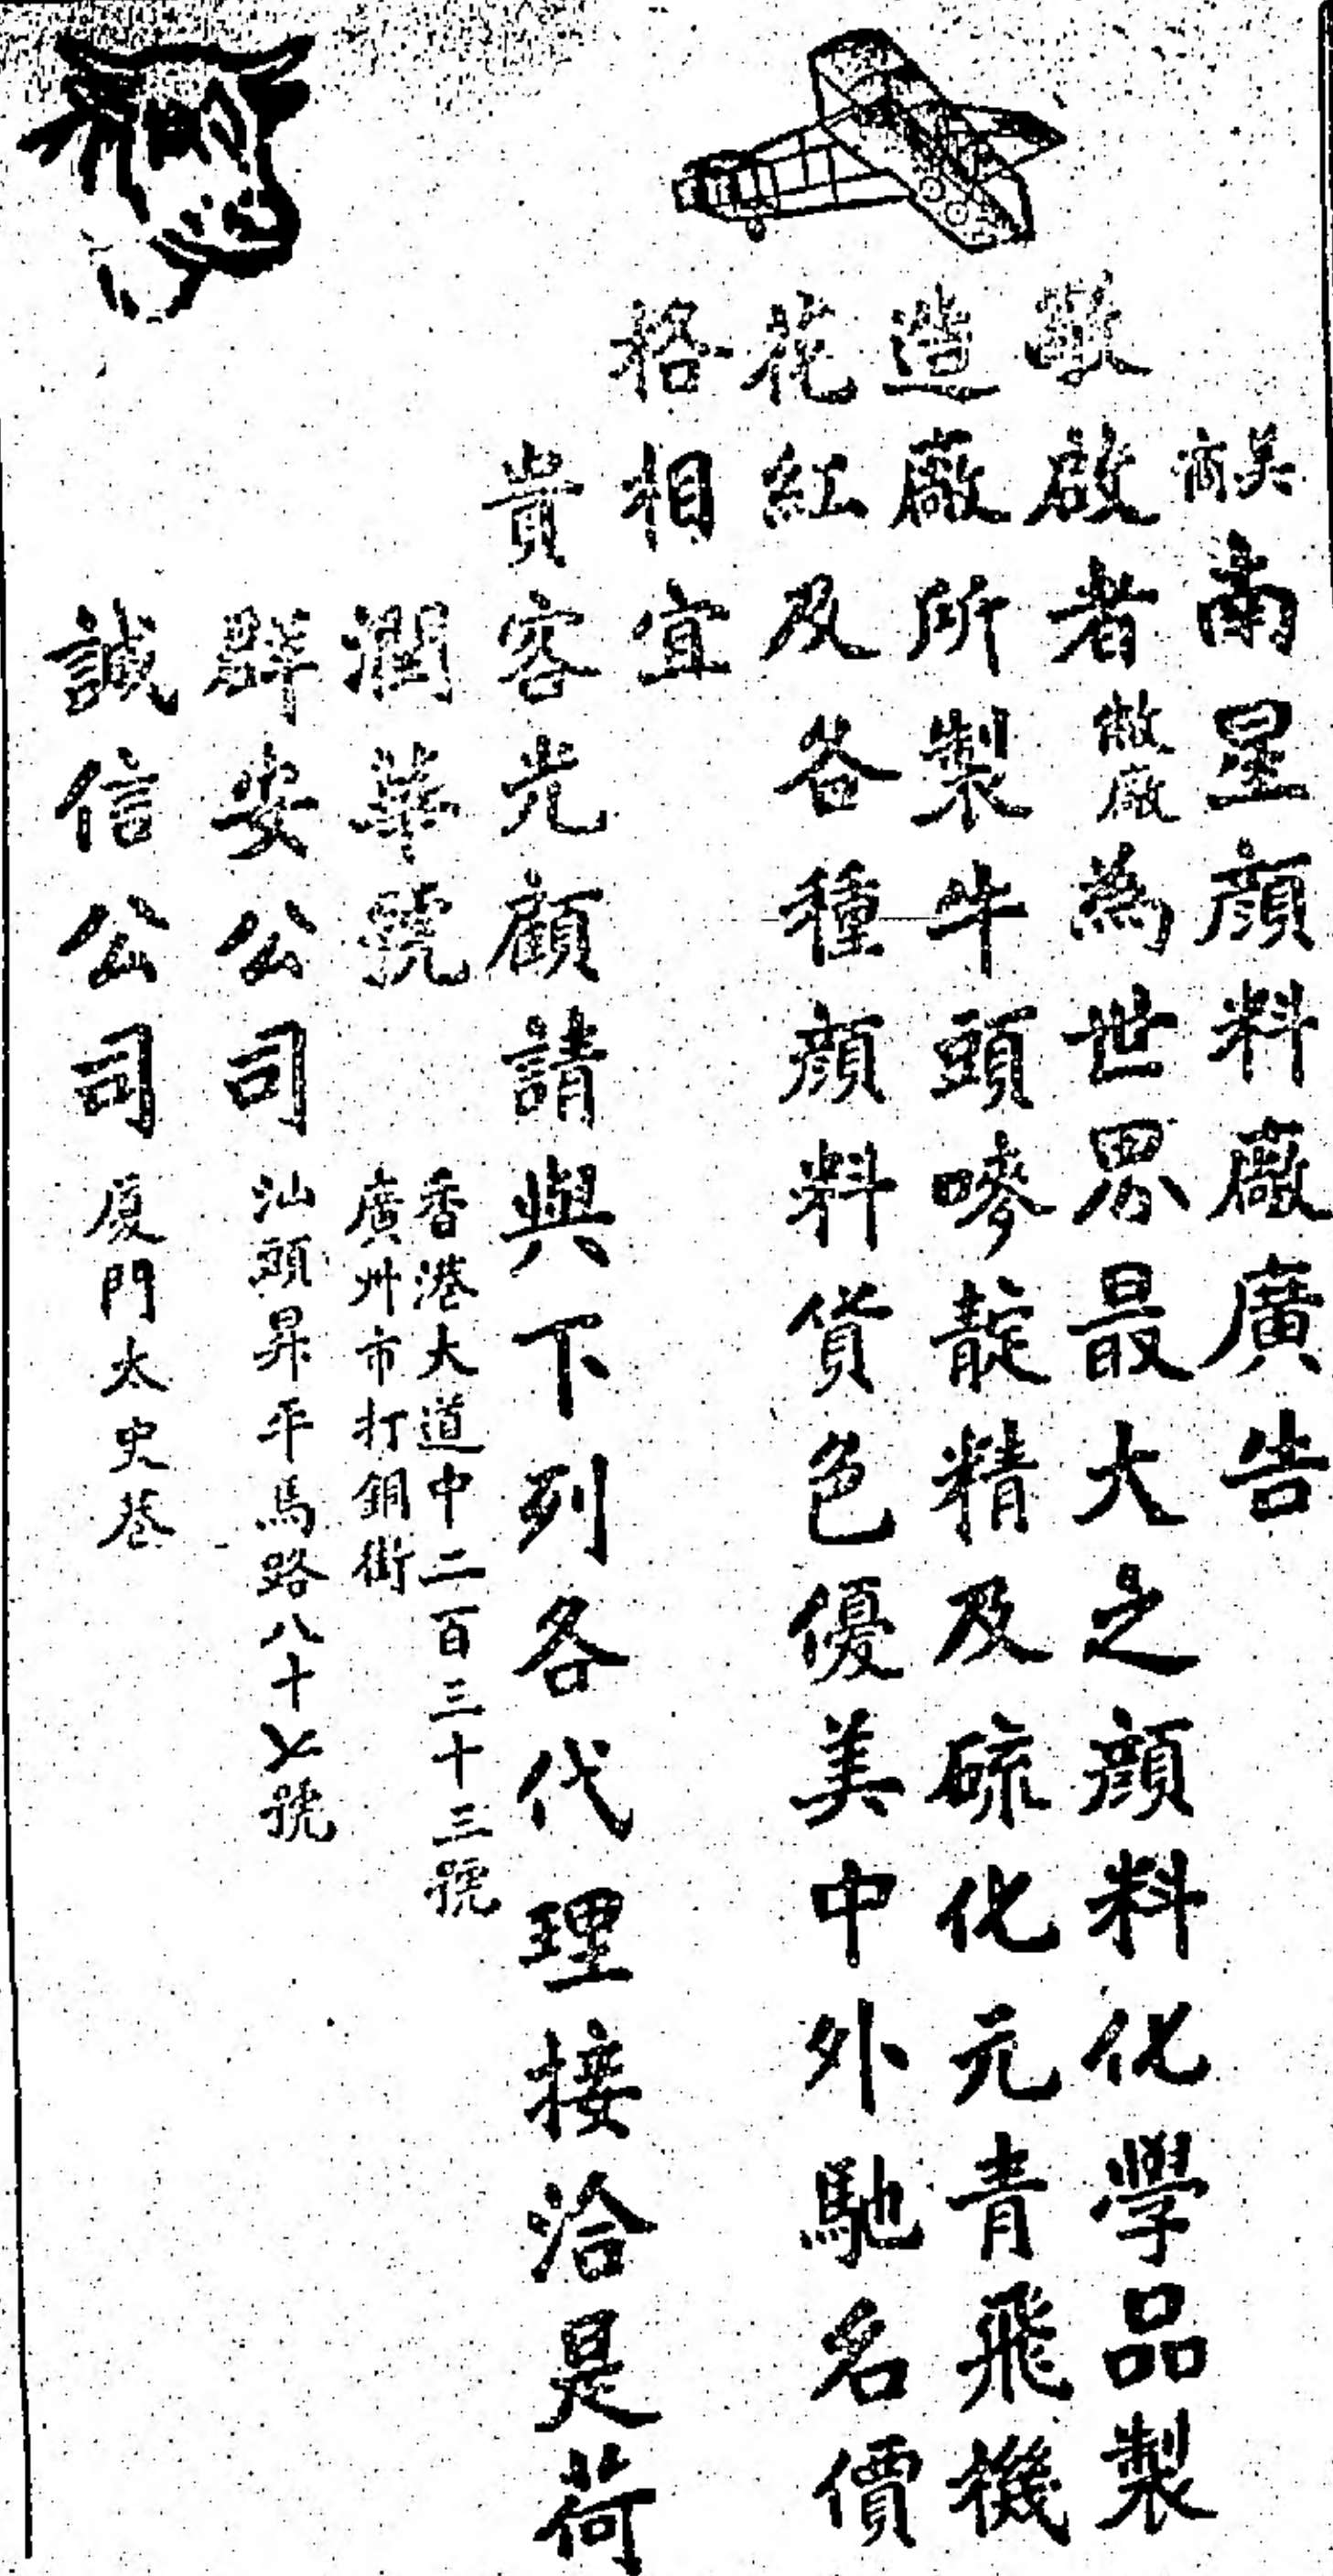 美商南星顏料廠廣告
敬啟者敝廠為世界最大之顏料化學品製
造廠所製牛頭嘜靛精及硫化元青飛機
花紅及各種顏料貨色優美中外馳名價
格相宜
貴客光顧請與下列各代理接洽是荷
潤華號
香港大道中二百三十三號
廣州市打銅街
安公司 汕頭昇平馬路八十七號
誠信公司 廈門太史巷